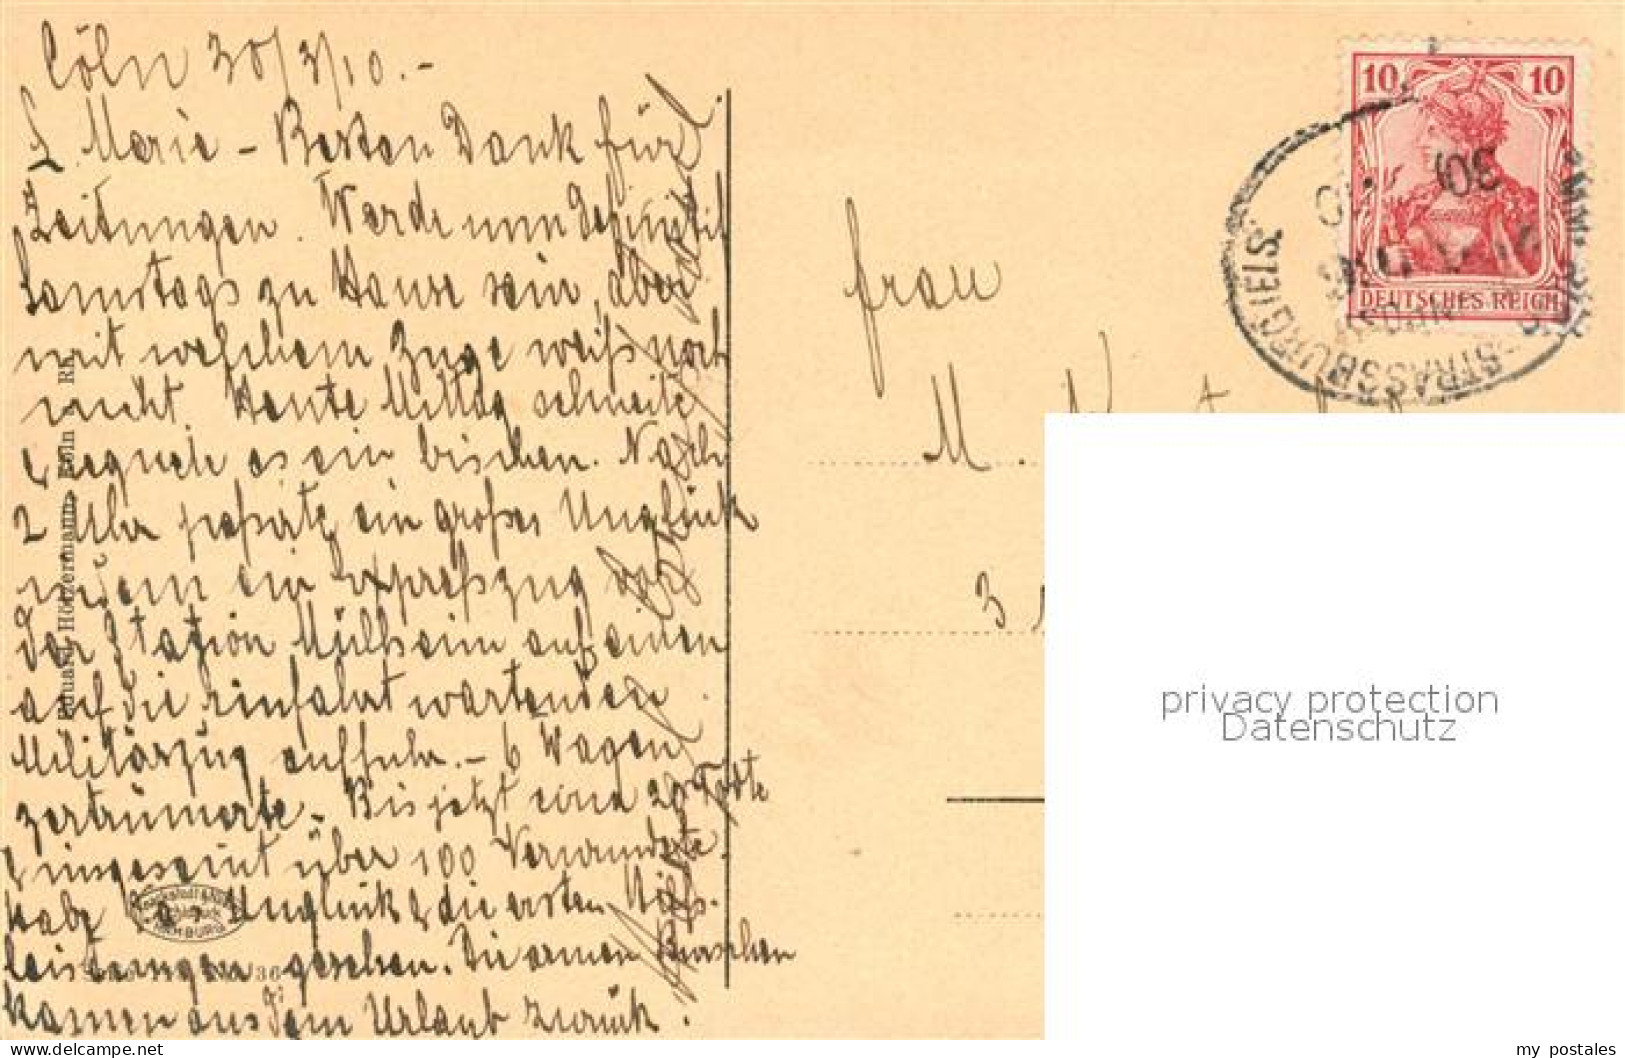 Cöln 30/3/10.-
L. Marie - Besten Dank für
Zeitungen. Werde nun definitif
Samstags zu Hause sein, aber
mit welchem Zuge weiß noch
nicht. Heute Mittag schneite
& regnete es ein bischen. Nach
2 Uhr passirte ein großes Unglück
indem ein Expreßzug vor
der Station Mülheim auf einen
auf die Einfahrt wartenden
Militärzug auffuhr. - 6 Wagen
zertrümmerte. Bis jetzt circa 20 Todte
& insgesamt über 100 Verwundete.
Habe das Unglück & die ersten Hülfs-
leistungen gesehen. Die armen Burschen
kamen aus dem Urlaub zurück.
Eduard Hötzermann, Köln a. Rh.
HAMBURG
36
Frau
M.
3
10 10
DEUTSCHES REICH
STRASSBURG (ELS.
privacy protection
Datenschutz
my_postales